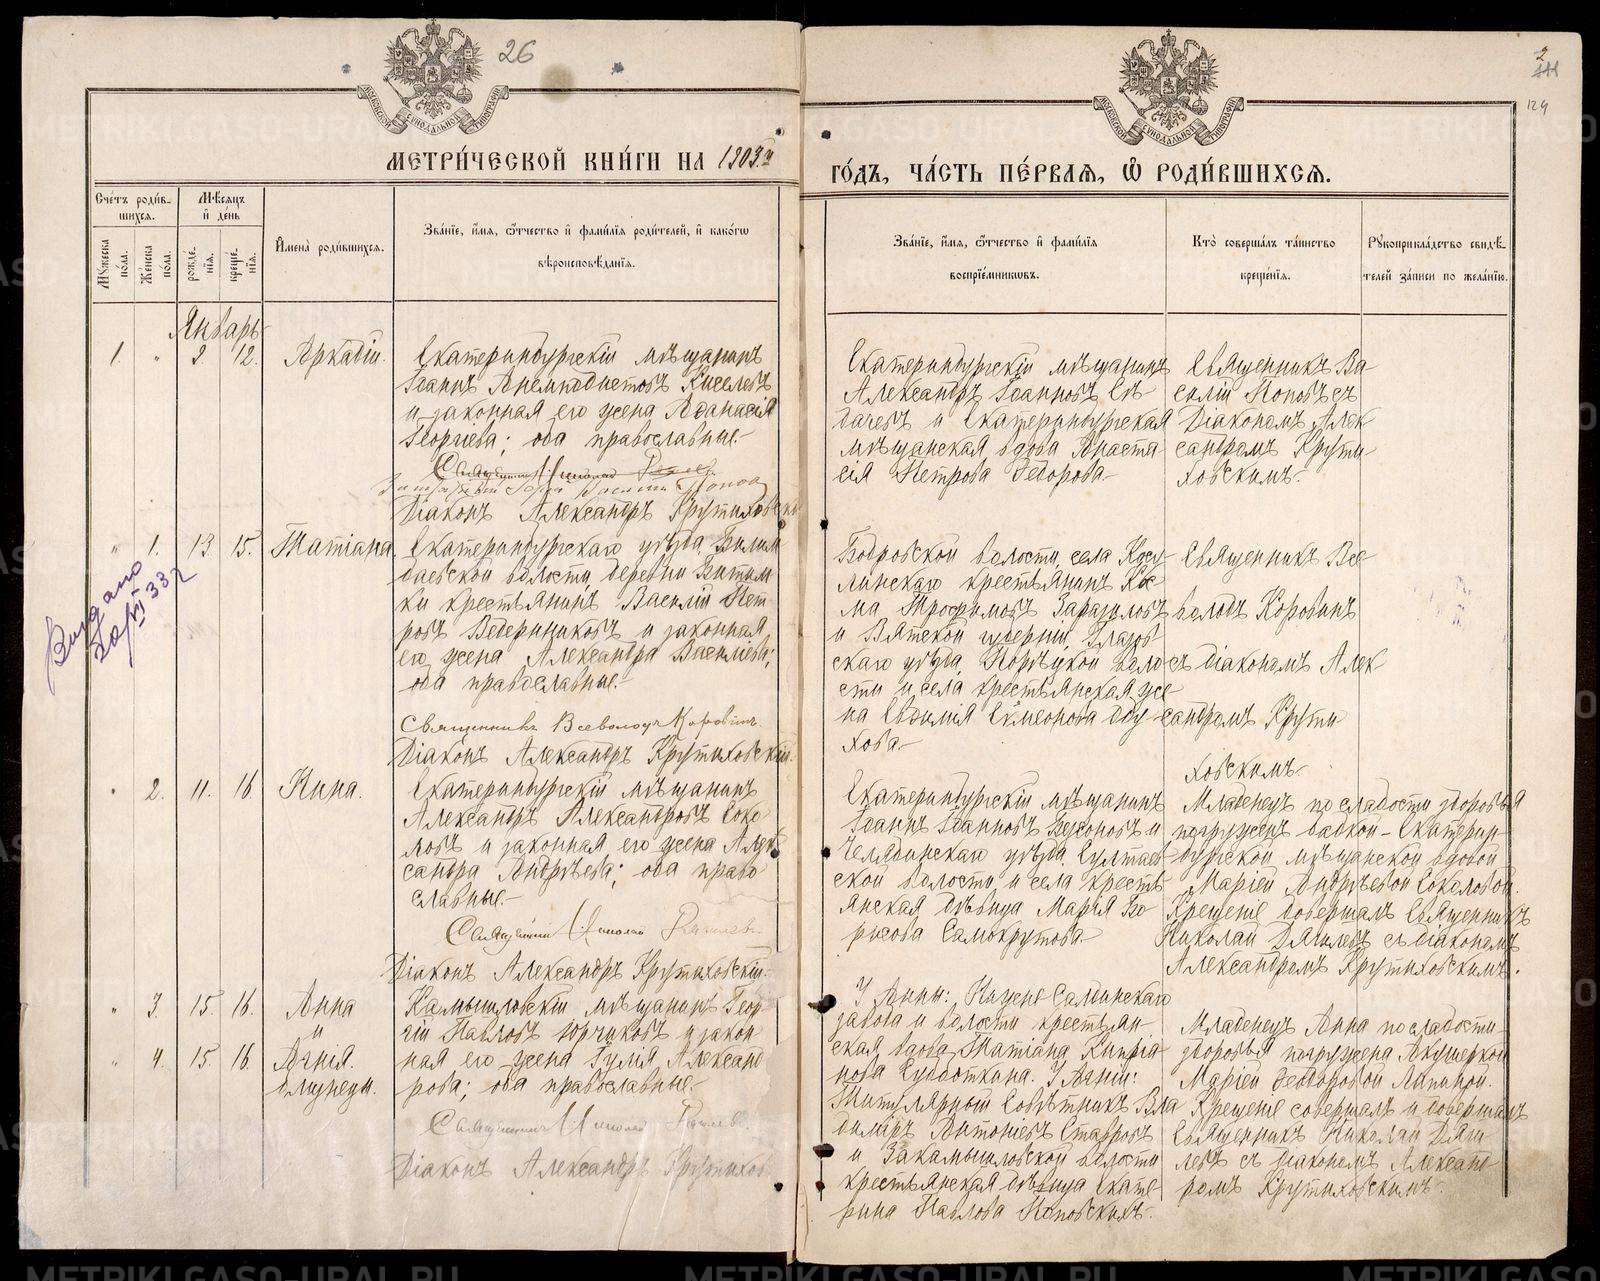 26
2
124
МЕТРИ́ЧЕСКОЙ КНИ́ГИ НА 1903.й
ГО́ДЪ, ЧА́СТЬ ПЕ́РВАЯ, Ѡ҆ РОДИ́ВШИХСЯ.
Сче́тъ роди́в-
шихся.
Мѣ́сяцъ
и҆ де́нь
Мꙋ́жеска
по́ла.
Же́нска
по́ла.
рожде́-
нїя.
креще́-
нїя.
И҆мена̀ роди́вшихся.
Зва́нїе, и҆́мя, ѻ҆́тчество и҆ фами́лїя роди́телей, и҆ како́гѡ
вѣроисповѣ́данїя.
Зва́нїе, и҆́мя, ѻ҆́тчество и҆ фами́лїя
воспрїе́мникѡвъ.
Кто̀ соверша́лъ та́инство
креще́нїя.
Рꙋкоприкла́дство свидѣ́-
телей за́писи по жела́нїю.
Январь
1. " 2 12. Аркадій.
Екатеринбургскій мѣщанинъ
Іоаннъ Анемподистовъ Киселевъ
и законная его жена Аѳанасія
Георгіева; оба православные.-
Священникъ Николай
Василій Попов
Діаконъ Александръ Крутиховскій
Екатеринбургскій мѣщанинъ
Александръ Іоанновъ Ев
дачевъ и Екатеринбургская
мѣщанская вдова Анаста
сія Петрова Ѳедорова-
Священникъ Ва
силій Поповъ съ
Діакономъ Алек
сандромъ Крути
ховскимъ.
" 1. 13. 15. Татіана.
Екатеринбургскаго уѣзда, Билим
баевской волости, деревни Битим
ки крестьянинъ Василій Пет
ровъ Ведерниковъ и законная
его жена Александра Василіева;
оба православные.-
Священникъ Всеволодъ Коровинъ.
Діаконъ Александръ Крутиховскій.
Выдано
Бобровской волости, села Косу
линскаго крестьянинъ Кос
ма Трофимовъ
и Вятской губерніи, Глазов
скаго уѣзда, Порѣзкой воло
сти и села крестьянская же
на Евдокія Симеонова Оbу
хова-
Священникъ Все
володъ Коровинъ
съ діакономъ Алек
сандромъ Крути
ховскимъ-
" 2. 11. 16. Нина.
Екатеринбургскій мѣщанинъ
Александръ Александровъ Соко
ловъ и законная его жена Алек
сандра Андрѣева; оба право
славные.-
Священникъ Николай Дягилевъ
Діаконъ Александръ Крутиховскій.
Екатеринбургскій мѣщанинъ
Іоаннъ Іоанновъ и
Челябинскаго уѣзда, Султаев
ской волости, и села кресть
янская дѣвица Марія Бо
рисова Самокрутова-
Младенецъ по слабости здоровья
погруженъ бабкой - Екатерин
бургской мѣщанской вдовой
Маріей Андрѣевой Соколовой.
Крещеніе довершалъ Священникъ
Николай Дягилевъ съ діакономъ
Александромъ Крутиховскимъ.
" 3. 15. 16. Анна
и
" 4. 15. 16. Агнія.
близнецы.
Камышловскій мѣщанинъ Геор
гій Павловъ Юрчиковъ и закон
ная его жена Іулія Александ
рова; оба православные.-
Священникъ Николай Дягилевъ.
Діаконъ Александръ Крутихов
У Анны: Нижне Салдинскаго
завода и волости крестьян
ская вдова Татіана Кипріа
нова Субботкина. У Агніи:
Титулярный Совѣтникъ Вла
диміръ Антоніевъ Ставровъ
и Закамышловской волости
крестьянская дѣвица Екате
рина Павлова Поповскихъ.
Младенецъ Анна по слабости
здоровья погружена Акушеркой
Маріей Ѳеодоровой Лапиной.
Крещеніе совершалъ и довершалъ
Священникъ Николай Дяги
левъ съ діакономъ Александ
ромъ Крутиховскимъ.
METRIKI.GASO-URAL.RU